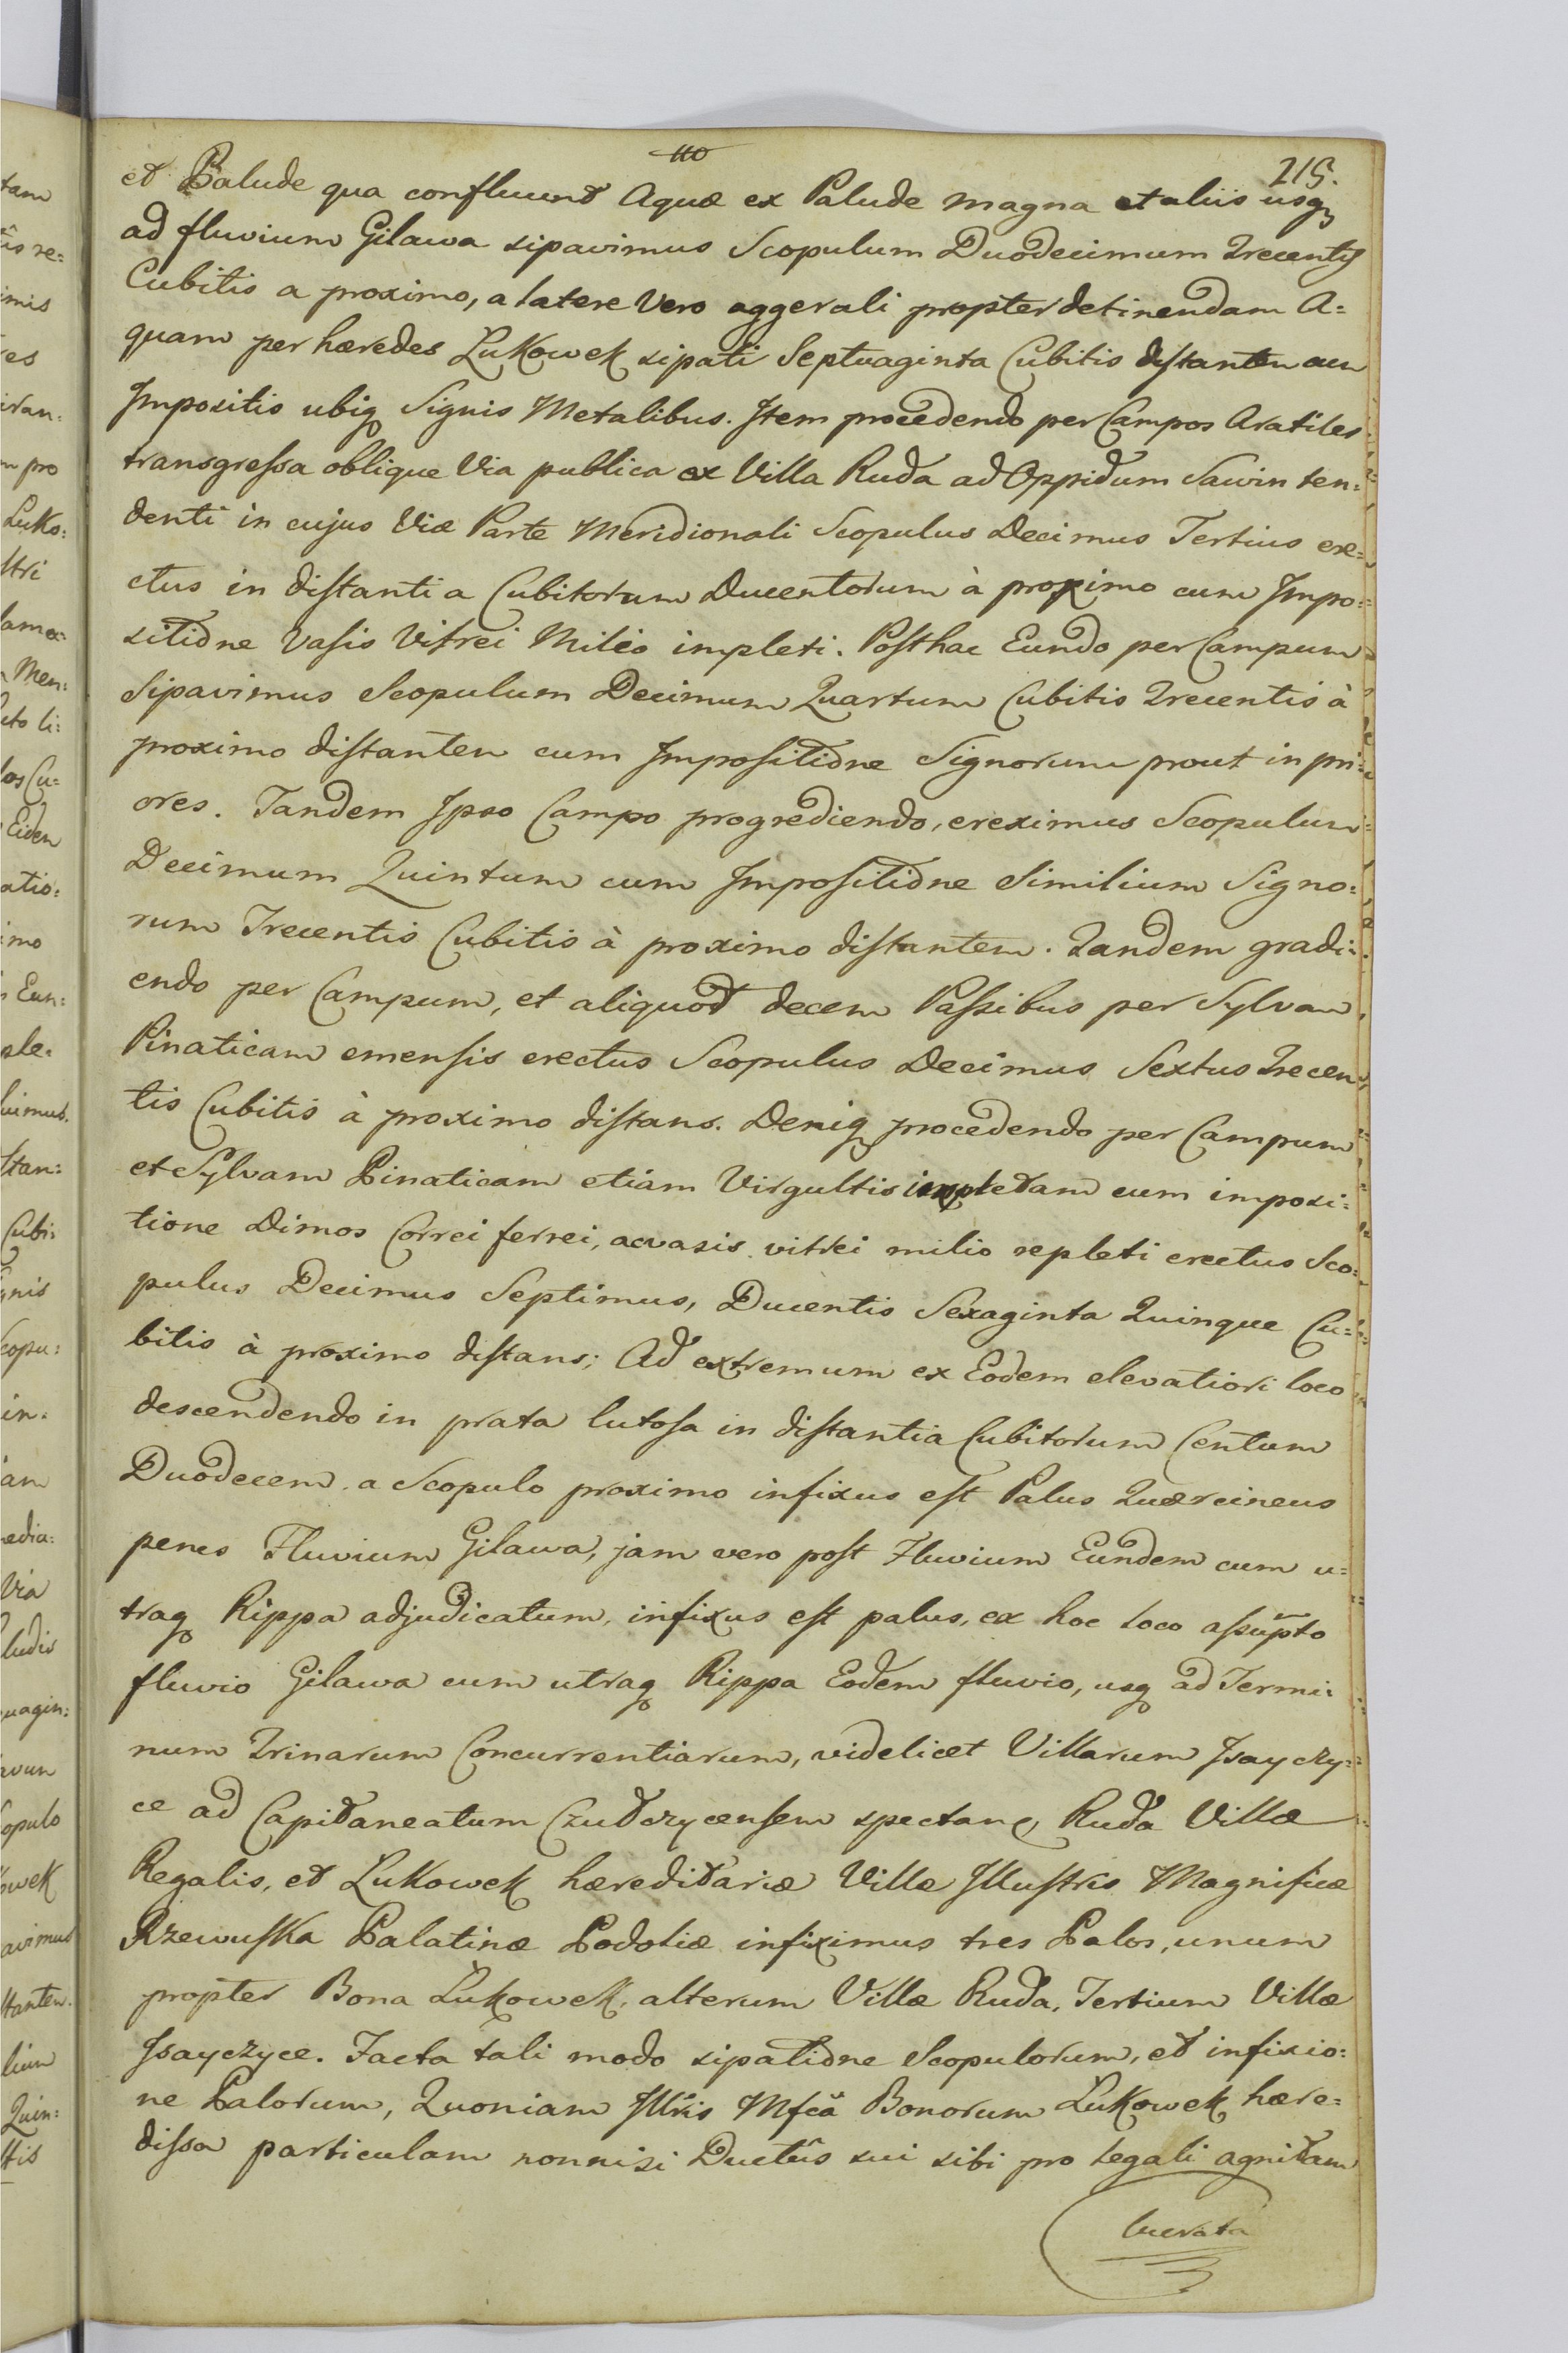 110
215.
et Palude qua confluunt Aquæ ex Palude magna et aliis usq
ad fluvium Gilawa sipavimus Scopulum Duodecimum Trecentis
Cubitis a proximo, a latere Vero aggerali propter detinendam A=
quam per hæredes Lukowek sipati Septuaginta Cubitis distantem cum
Impositis ubiq Signis Metalibus. Item procedendo per Campos Aratiles
transgressa oblique Via publica ex Villa Ruda ad Oppidum Sawin ten=
denti in cujus Viæ Parte Meridionali Scopulus Decimus Tertius ere=
ctus in distantia Cubitorum Ducentorum à proximo cum Impo=
sitione Vasis Vitrei Milio impleti. Posthac Eundo per Campum
Sipavimus Scopulum Decimum Quartum Cubitis Trecentis à
proximo distantem cum Impositione Signorum prout in pri=
ores. Tandem Ipso Campo progrediendo, ereximus Scopulum
Decimum Quintum cum Impositione Similium Signo=
rum Trecentis Cubitis à proximo distantem. Tandem gradi=
endo per Campum, et aliquot decem Passibus per Sylvam
Pinaticam emensis erectus Scopulus Decimus Sextus Trecen
tis Cubitis à proximo distans. Deniq procedendo per Campum
et Sylvam Pinaticam etiam Virgultis impletam cum imposi=
tione Dimos Correi ferrei, ac vasis vitrei milio repleti erectus Sco=
pulus Decimus Septimus, Ducentis Sexaginta Quinque Cu=
bitis à proximo distans; Ad extremum ex Eodem elevatiori loco
descendendo in prata lutosa in distantia Cubitorum Centum
Duodecem a Scopulo proximo infixus est Palus Quærcineus
penes Fluvium Gilawa, jam vero post Fluvium Eundem cum u=
traq Rippa adjudicatum, infixus est palus, ex hoc loco assūpto
fluvio Gilawa cum utraq Rippa Eodem fluvio, usq ad Termi=
num Trinarum Concurrentiarum, videlicet Villarum Isayczy=
ce ad Capitaneatum Czudczycensem spectan, Ruda Villæ
Regalis, et Lukowek hæreditariæ Villæ Illustris Magnificæ
Rzewuska Palatinæ Podoliæ infiximus tres Palos, unum
propter Bona Lukowek, alterum Villæ Ruda, Tertium Villæ
Isayczyce. Facta tali modo sipatione Scopulorum, et infixio=
ne Palorum, Quoniam Illris Mfca Bonorum Lukowek hære=
dissa particulam nonnisi Ductûs sui sibi pro legali agnitam